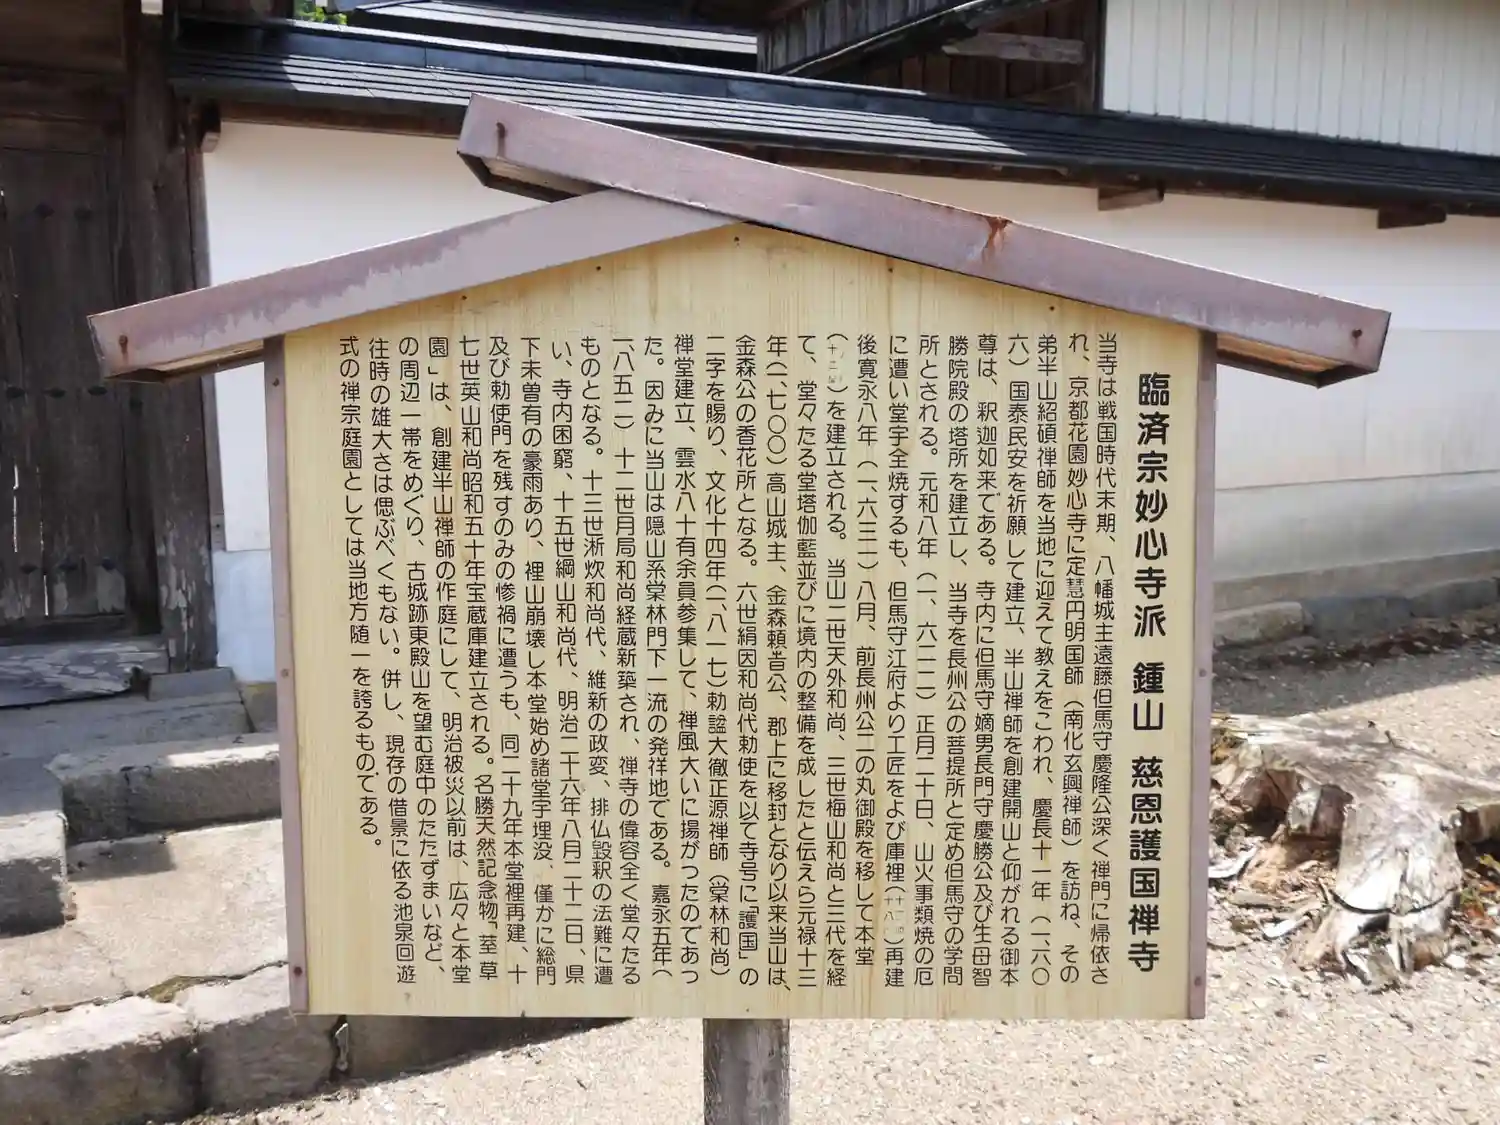 臨済宗妙心寺派 鍾山 慈恩護国禅寺
当寺は戦国時代末期、八幡城主遠藤但馬守慶隆公深く禅門に帰依さ
れ、京都花園妙心寺に定慧円明国師（南化玄興禅師）を訪ね、その
弟半山紹碩禅師を当地に迎えて教えをこわれ、慶長十一年（一、六〇
六）国泰民安を祈願して建立、半山禅師を創建開山と仰がれる御本
尊は、釈迦如来である。寺内に但馬守嫡男長門守慶勝公及び生母智
勝院殿の塔所を建立し、当寺を長州公の菩提所と定め但馬守の学問
所とされる。元和八年（一、六二二）正月二十日、山火事類焼の厄
に遭い堂宇全焼するも、但馬守江府より工匠をよび庫裡（　）再建
後寛永八年（一、六三一）八月、前長州公二の丸御殿を移して本堂
（　）を建立される。当山二世天外和尚、三世梅山和尚と三代を経
て、堂々たる堂塔伽藍並びに境内の整備を成したと伝えら元禄十三
年（一、七〇〇）高山城主、金森頼旹公、郡上に移封となり以来当山は、
金森公の香花所となる。六世絹因和尚代勅使を以て寺号に「護国」の
二字を賜り、文化十四年（一、八一七）勅諡大徹正源禅師（棠林和尚）
禅堂建立、雲水八十有余員参集して、禅風大いに揚がったのであっ
た。因みに当山は隠山系棠林門下一流の発祥地である。嘉永五年（
一、八五二）十二世月局和尚経蔵新築され、禅寺の偉容全く堂々たる
ものとなる。十三世淅炊和尚代、維新の政変、排仏毀釈の法難に遭
い、寺内困窮、十五世綱山和尚代、明治二十六年八月二十二日、県
下未曽有の豪雨あり、裡山崩壊し本堂始め諸堂宇埋没、僅かに総門
及び勅使門を残すのみの惨禍に遭うも、同二十九年本堂裡再建、十
七世英山和尚昭和五十年宝蔵庫建立される。名勝天然記念物「荎草
園」は、創建半山禅師の作庭にして、明治被災以前は、広々と本堂
の周辺一帯をめぐり、古城跡東殿山を望む庭中のたたずまいなど、
往時の雄大さは偲ぶべくもない。併し、現存の借景に依る池泉回遊
式の禅宗庭園としては当地方随一を誇るものである。